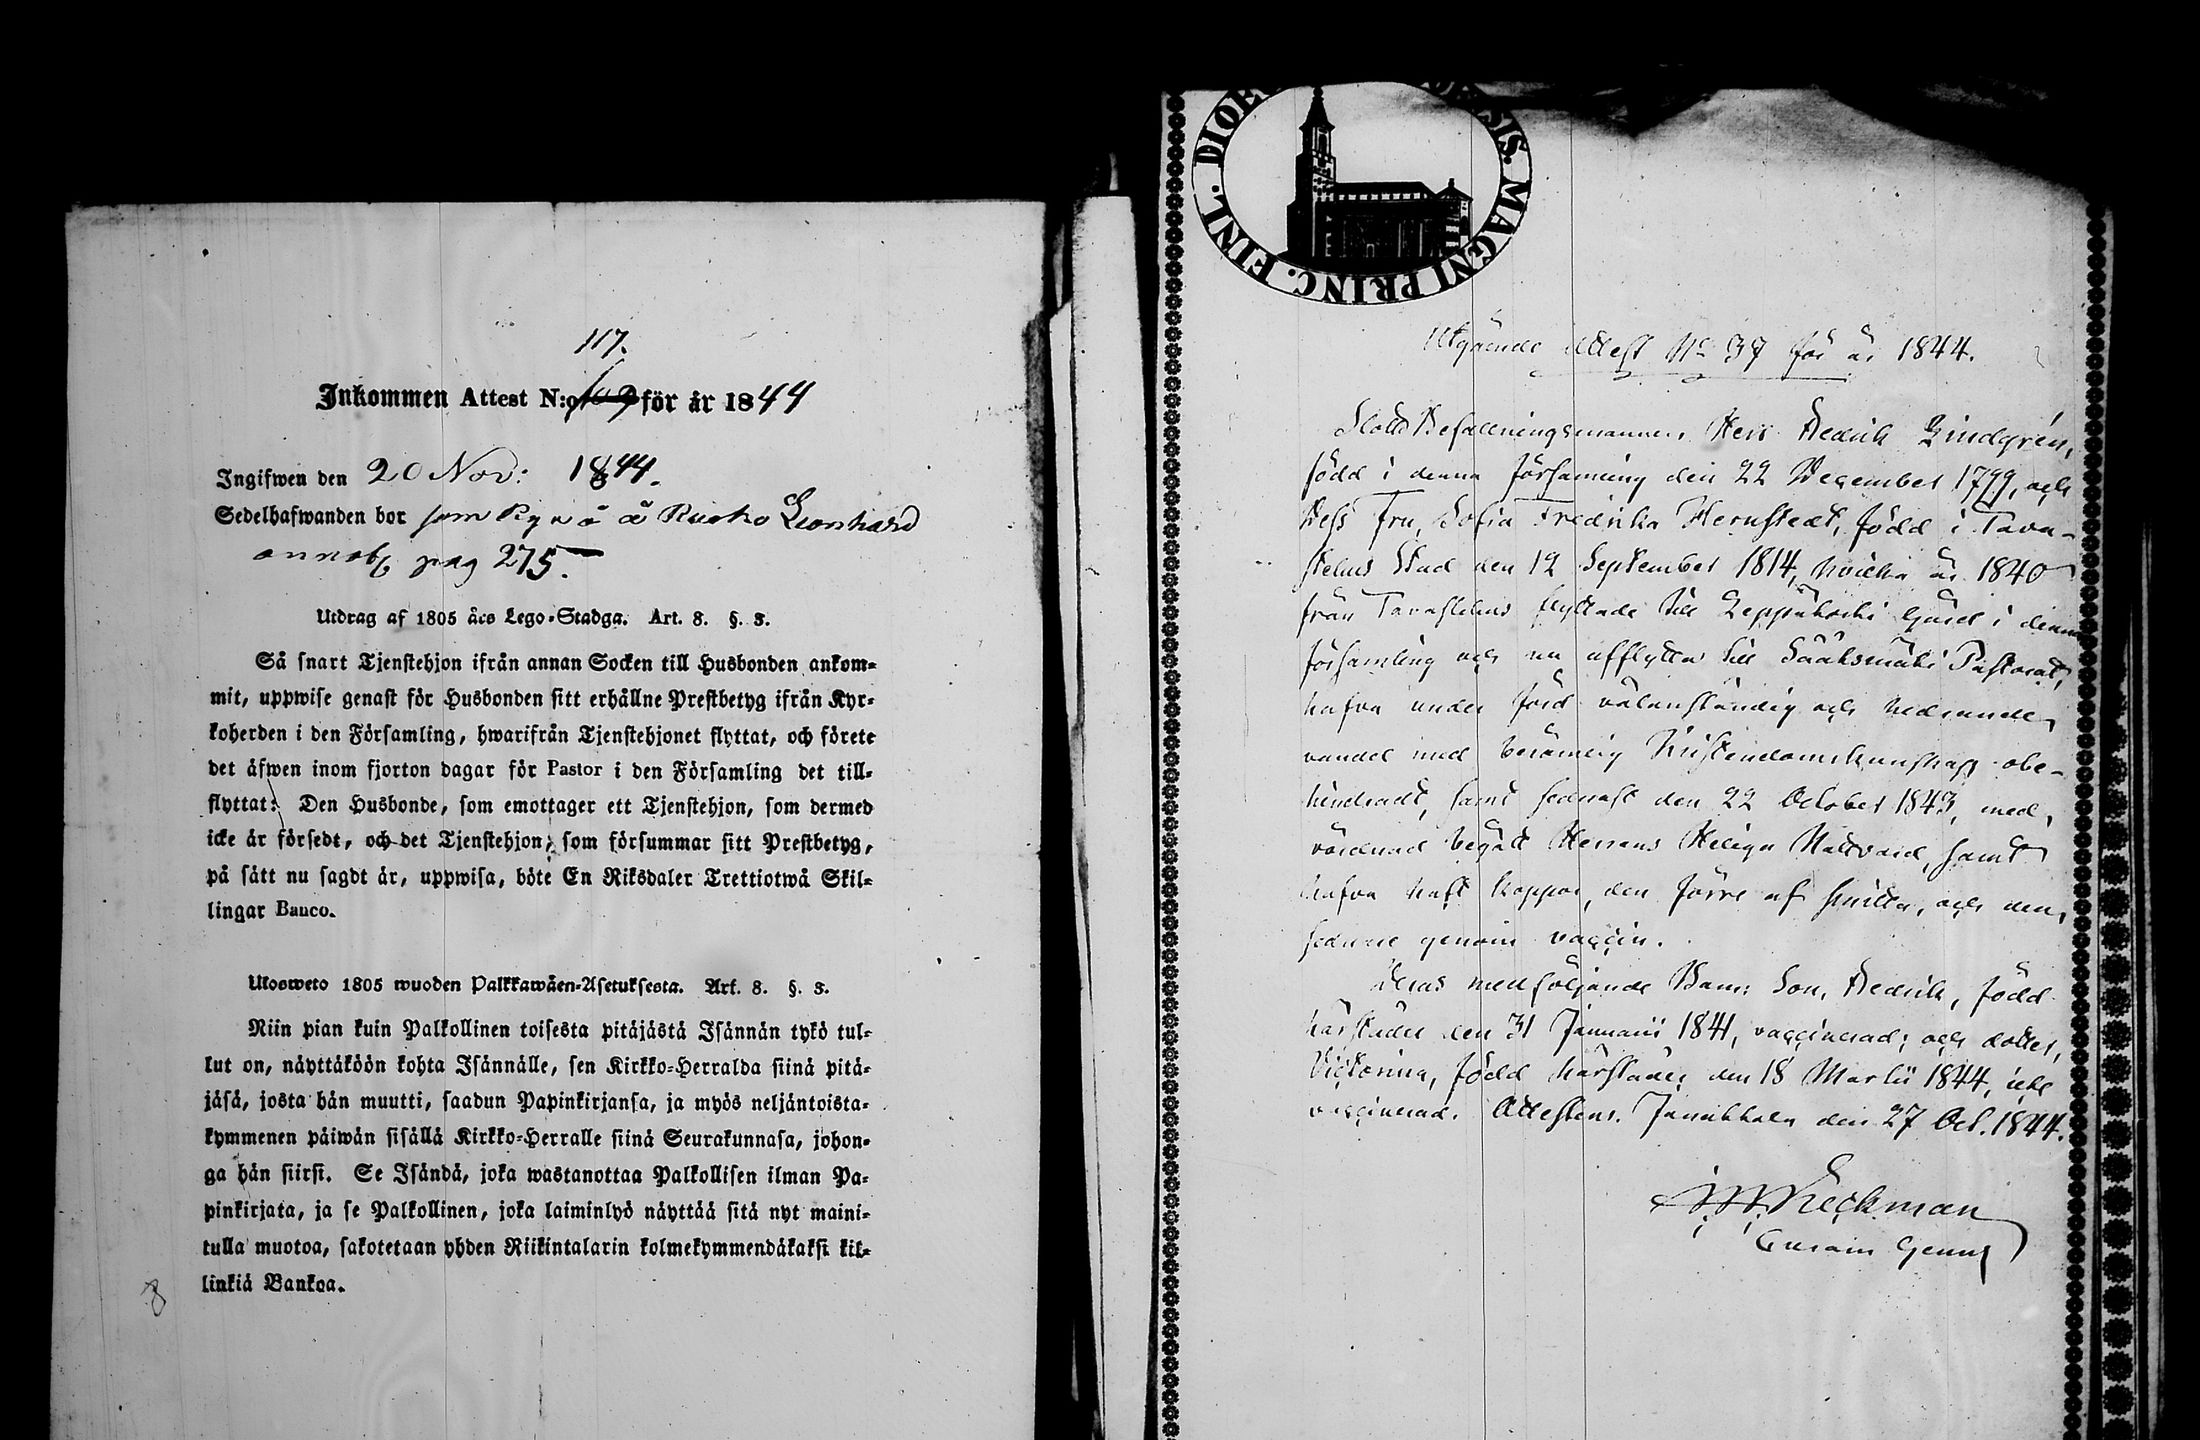 117.
Inkommen Attest N:o 109 för år 1844
Ingifwen den 20 Nov: 1844.
Sedelhafwanden bor som Pyrå å Rusko Leonhard
annots pag 275.
Utdrag af 1805 års Lego-Stadga. Art. 8. §. 3.
Så snart Tjenstehjon ifrån annan Socken till Husbonden ankom=
mit, uppwise genast för Husbonden sitt erhållne Prestbetyg ifrån Kyr=
koherden i den Församling, hwarifrån Tjenstehjonet flyttat, och förete
det äfwen inom fjorton dagar för Pastor i den Församling det till=
flyttat: Den Husbonde, som emottager ett Tjenstehjon, som dermed
icke är försedt, och det Tjenstehjon, som försummar sitt Prestbetyg,
på sätt nu sagdt är, uppwisa, böte En Riksdaler Trettiotwå Skil=
lingar Banco.
Ulosweto 1805 wuoden Palkkawäen-Asetuksesta. Art. 8. §. 3.
Niin pian kuin Palkollinen toisesta pitäjästä Isännän tykö tul=
lut on, näyttäköön kohta Isännälle, sen Kirkko=Herralda siinä pitä=
jäsä, josta hän muutti, saadun Papinkirjansa, ja myös neljäntoista=
kymmenen päiwän sisällä Kirkko=Herralle siinä Seurakunnasa, johon=
ga hän siirsi. Se Isändä, joka wastanottaa Palkollisen ilman Pa=
pinkirjata, ja se Palkollinen, joka laiminlyö näyttää sitä nyt maini=
tulla muotoa, sakotetaan yhden Riikintalarin kolmekymmendäkaksi kil=
linkiä Bankoa.
8
FINL. DIOE SIS. MAGNI PRINC.
Utgående Attest No 37 för år 1844.
Slotts Befallningsmannen Herr Fredrik Lindgrén,
född i denna församling den 22 December 1799, och
Dess Fru, Sofia Fredrika Hernstedt, född i Tava-
stehus Stad den 12 September 1814, hvilka år 1840
från Tavastehus flyttade till Leppäkoski Gård i denna
församling och nu afflytta till Sääksmäki Pastorat,
hafva under förd välanständig och hedrande
vandel med berömlig Kristendomskunskap obe-
hindradt, samt sednast den 22 October 1843, med
vördnad begått Herrans Heliga Nattvard, samt
hafva haft koppor, den förre af smitta, och den
sednare genom vaccin.
Deras medföljande Barn: Son, Fredrik, född
härstädes den 31 Januarii 1841, vaccinerad; och dotter,
Victorina, född härstädes den 18 Martii 1844, icke
vaccinerad. Attesteras. Janakkala den 27 Oct. 1844.
Heckman